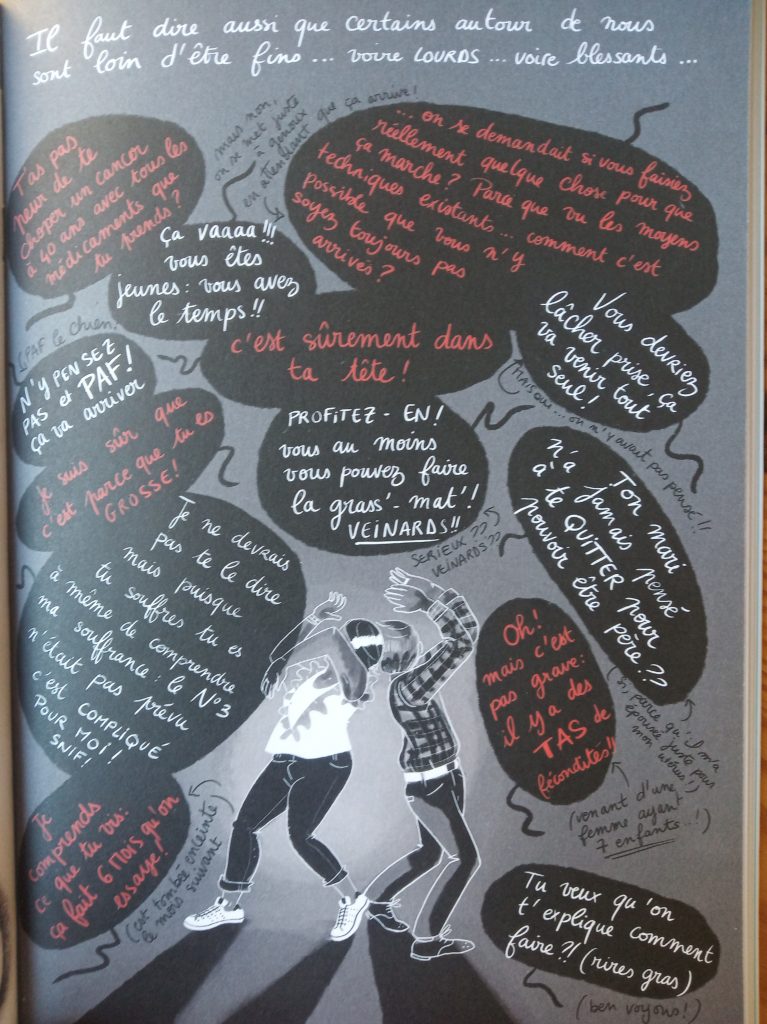 Il faut dire aussi que certains autour de nous
sont loin d'être fins... voire LOURDS... voire blessants...
T'as pas
peur de te
choper un cancer
à 40 ans avec tous les
médicaments que
tu prends?
mais non,
on se met juste
à genoux
en attendant que ça arrive!
... on se demandait si vous faisiez
réellement quelque chose pour que
ça marche? Parce que vu les moyens
techniques existants... comment c'est
possible que vous n'y
soyez toujours pas
arrivés?
ça vaaaa!!!
vous êtes
jeunes: vous avez
le temps!!
c'est sûrement dans
ta tête!
Vous devriez
lâcher prise, ça
va venir tout
seul!
MAIS OUI... on n'y avait pas pensé!!
PAF le chien!
N'Y PENSEZ
PAS et PAF!
ça va arriver
Je suis sûr que
c'est parce que tu es
GROSSE!
PROFITEZ-EN!
vous au moins
vous pouvez faire
la grass'-mat'!
VEINARDS!!
SERIEUX??
VEINARDS??
Ton mari
n'a jamais pensé
à te QUITTER pour
pouvoir être père??
(Si, parce qu'il m'a
épousée juste pour
mon utérus!)
Je ne devrais
pas te le dire
mais puisque
tu souffres tu es
à même de comprendre
ma souffrance: le N°3
n'était pas prévu
c'est COMPLIQUÉ
POUR MOI!
SNIF!
Oh!
mais c'est
pas grave:
il y a des
TAS de
fécondités!!
(venant d'une
femme ayant
7 enfants...!)
Je
comprends
ce que tu vis:
ça fait 6 MOIS qu'on
essaye!
(est tombée enceinte
le mois suivant)
Tu veux qu'on
t'explique comment
faire?! (rires gras)
(ben voyons!)